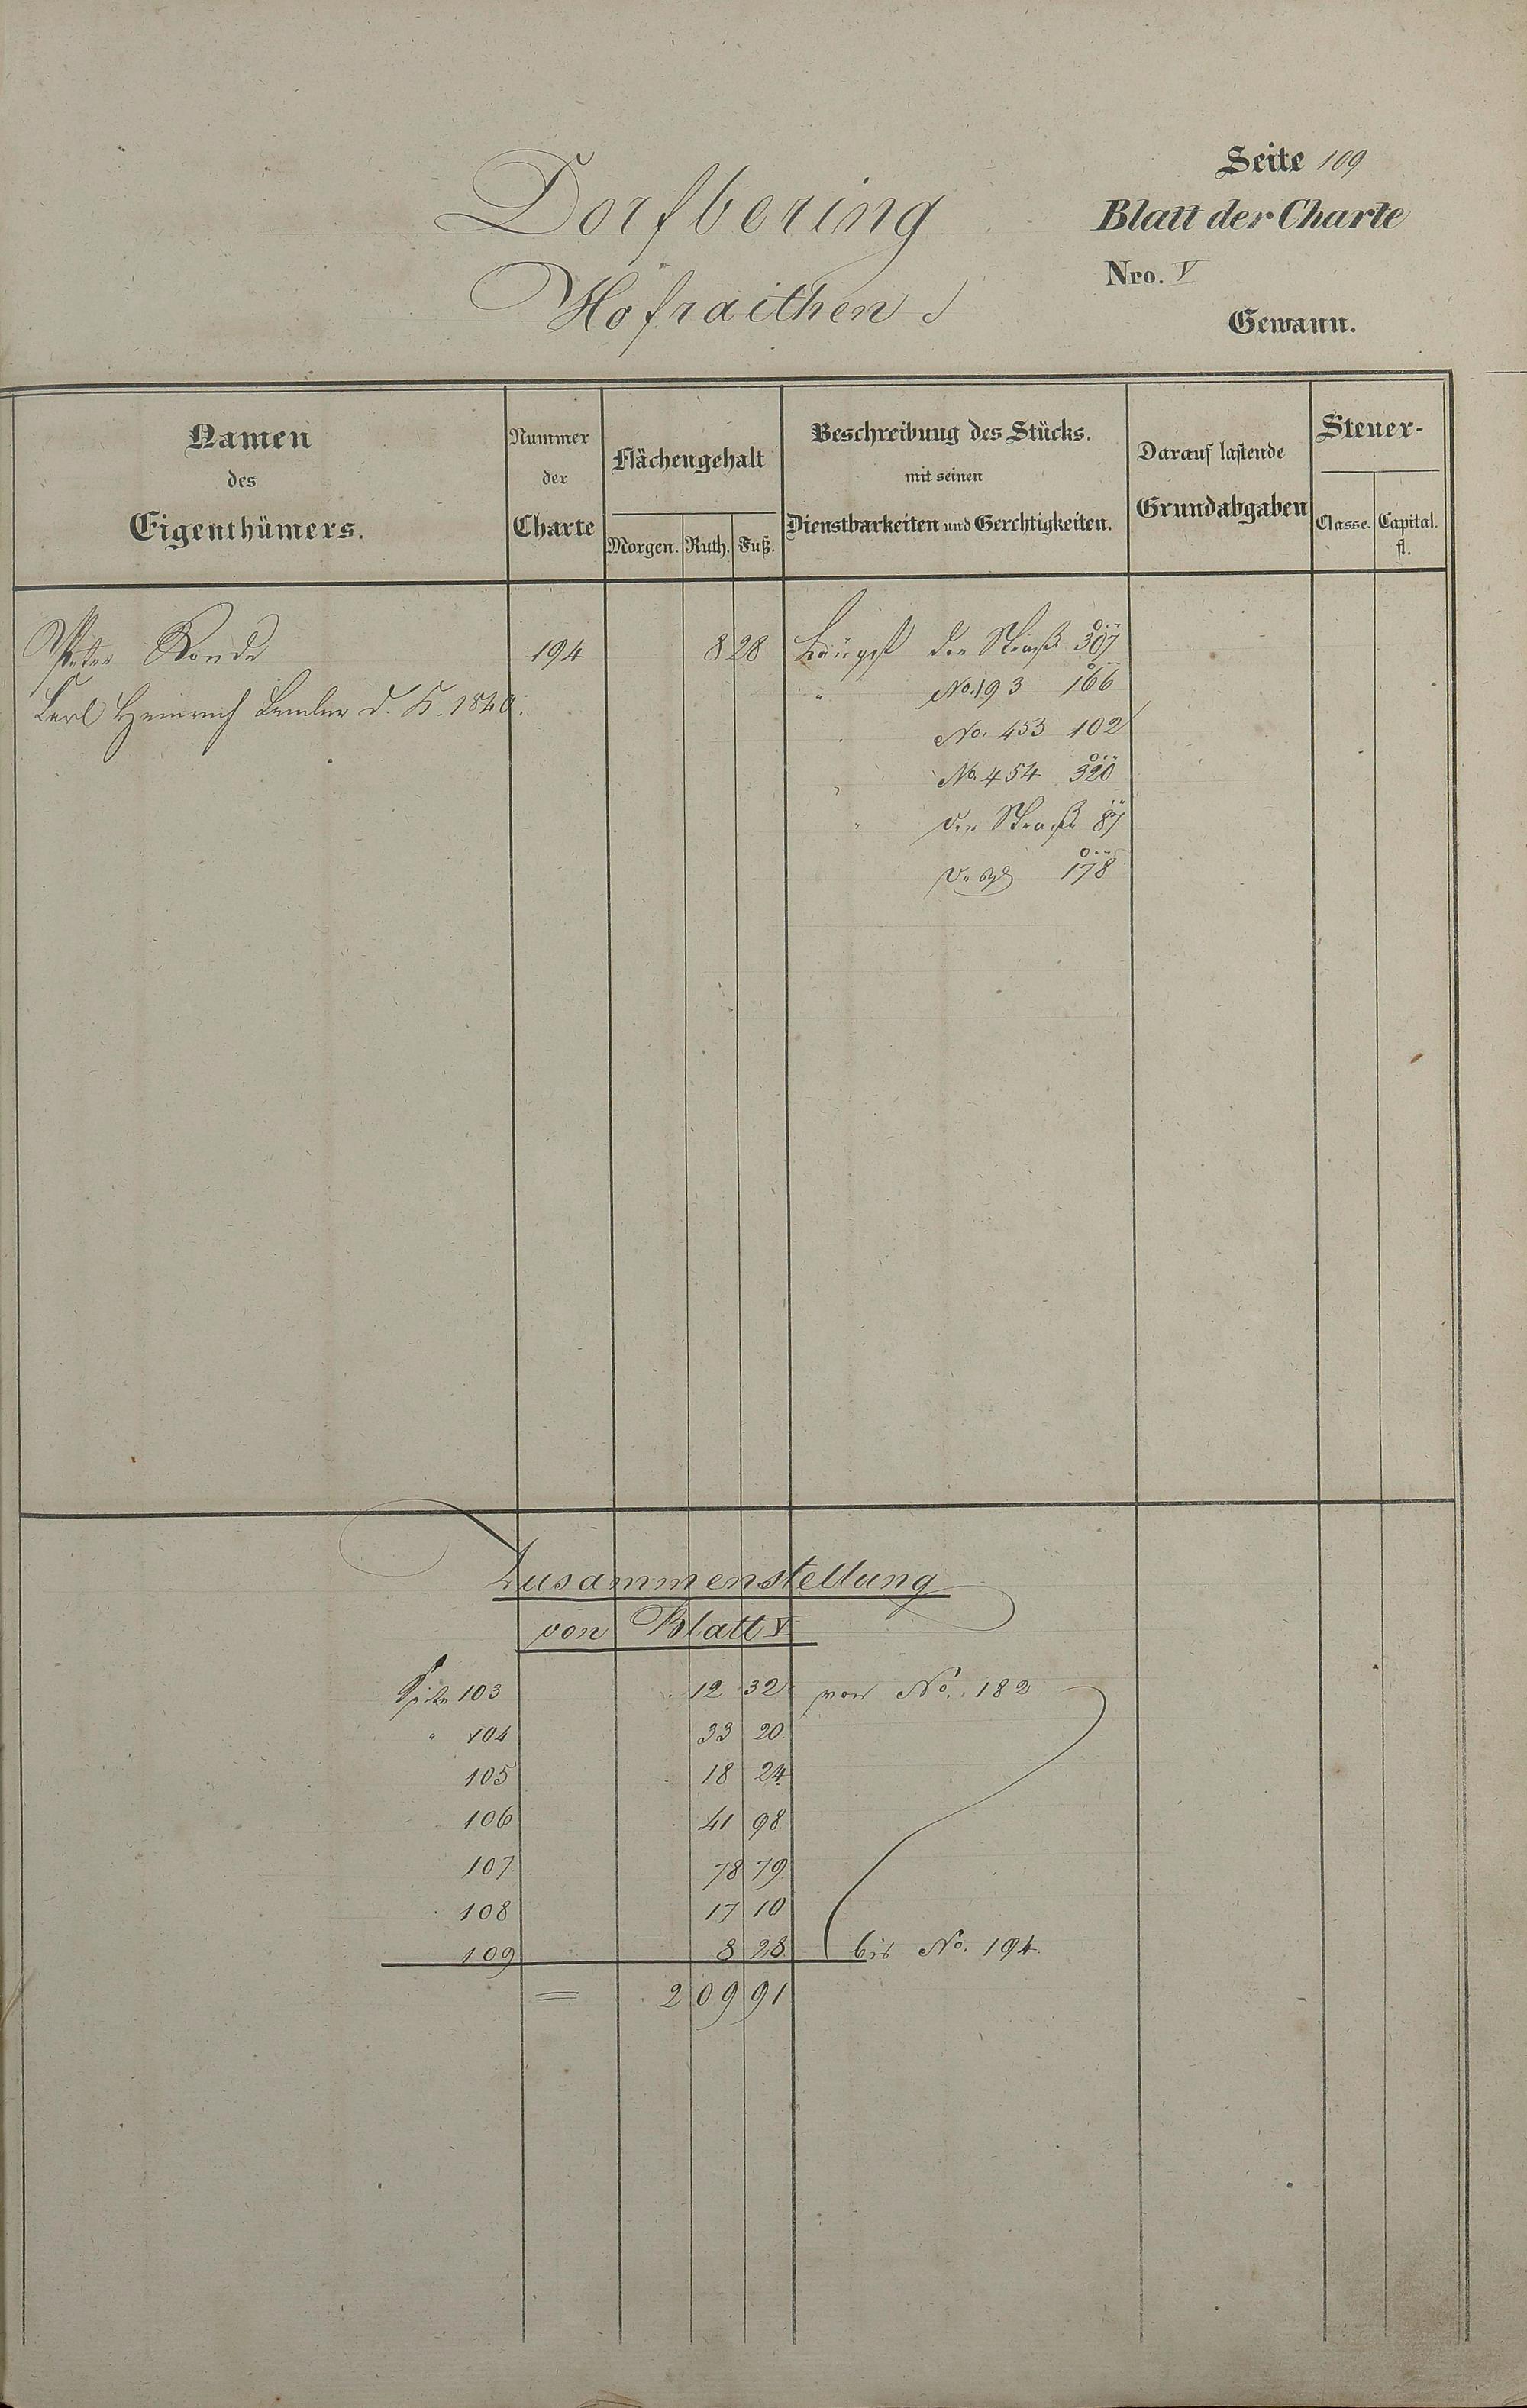 Seite 109
Dorfbering
Blatt der Charte
Hofraithen
Nro. V
Gewann.
Namen des Eigenthümers.
Nummer der Charte
Flächengehalt
Morgen. Ruth. Fuß.
Beschreibung des Stücks. mit seinen Dienstbarkeiten und Gerchtigkeiten.
Darauf lastende Grundabgaben
Steuer-
Classe. Capital. fl.
Peter 194 8 28 Längst der Straß 307
Carl Heinrich d. K. 1840.
" No. 193 166
" No. 453 102
" No. 454 320
" der Straße 87
desgl 178
Zusammenstellung
von Blatt V
Seite 103 12 32 von No. 182
" 104 33 20
105 18 24
106 41 98
107 78 79
108 17 10
109 8 28 bis No. 194
= 209 91